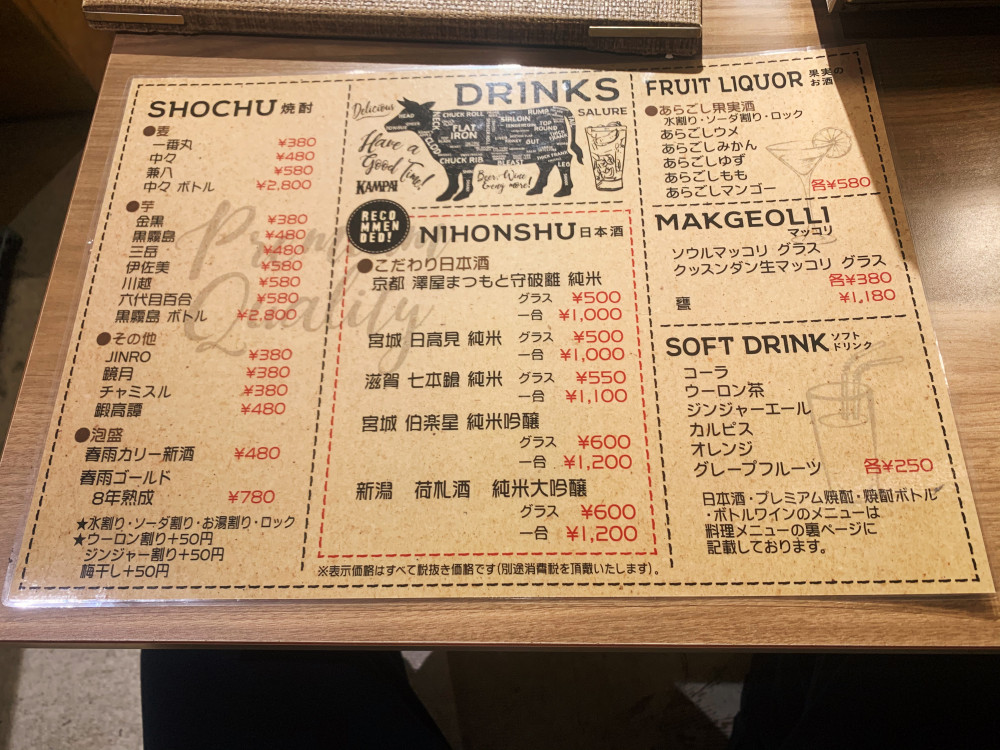 SHOCHU 焼酎
●麦
一番丸 ¥380
中々 ¥480
兼八 ¥580
中々 ボトル ¥2,800
●芋
金黒 ¥380
黒霧島 ¥480
三岳 ¥480
伊佐美 ¥580
川越 ¥580
六代目百合 ¥580
黒霧島 ボトル ¥2,800
●その他
JINRO ¥380
鏡月 ¥380
チャミスル ¥380
鍛高譚 ¥480
●泡盛
春雨カリー新酒 ¥480
春雨ゴールド
8年熟成 ¥780
★水割り・ソーダ割り・お湯割り・ロック
★ウーロン割り+50円
ジンジャー割り+50円
梅干し+50円
Premium
Quality
DRINKS
SALURE
Delicious
Have a
Good Time!
KAMPAI
HEAD
NECK
CLOD
CHUCK ROLL
FLAT
IRON
CHUCK RIB
SIRLOIN
TENDERLOIN
RUMP
TOP
ROUND
OUT
THICK FLANK
BREAST
LEG
Beer, Wine
& many more!
RECO
MMEN
DED!
NIHONSHU 日本酒
●こだわり日本酒
京都 澤屋まつもと守破離 純米
グラス ¥500
一合 ¥1,000
宮城 日高見 純米 グラス ¥500
一合 ¥1,000
滋賀 七本鎗 純米 グラス ¥550
一合 ¥1,100
宮城 伯楽星 純米吟醸
グラス ¥600
一合 ¥1,200
新潟 荷札酒 純米大吟醸
グラス ¥600
一合 ¥1,200
※表示価格はすべて税抜き価格です(別途消費税を頂戴いたします)。
FRUIT LIQUOR 果実のお酒
●あらごし果実酒
水割り・ソーダ割り・ロック
あらごしウメ
あらごしみかん
あらごしゆず
あらごしもも
あらごしマンゴー 各¥580
MAKGEOLLI
マッコリ
ソウルマッコリ グラス
クッスンダン生マッコリ グラス
各¥380
甕 ¥1,180
SOFT DRINK ソフトドリンク
コーラ
ウーロン茶
ジンジャーエール
カルピス
オレンジ
グレープフルーツ 各¥250
日本酒・プレミアム焼酎・焼酎ボトル
・ボトルワインのメニューは
料理メニューの裏ページに
記載しております。